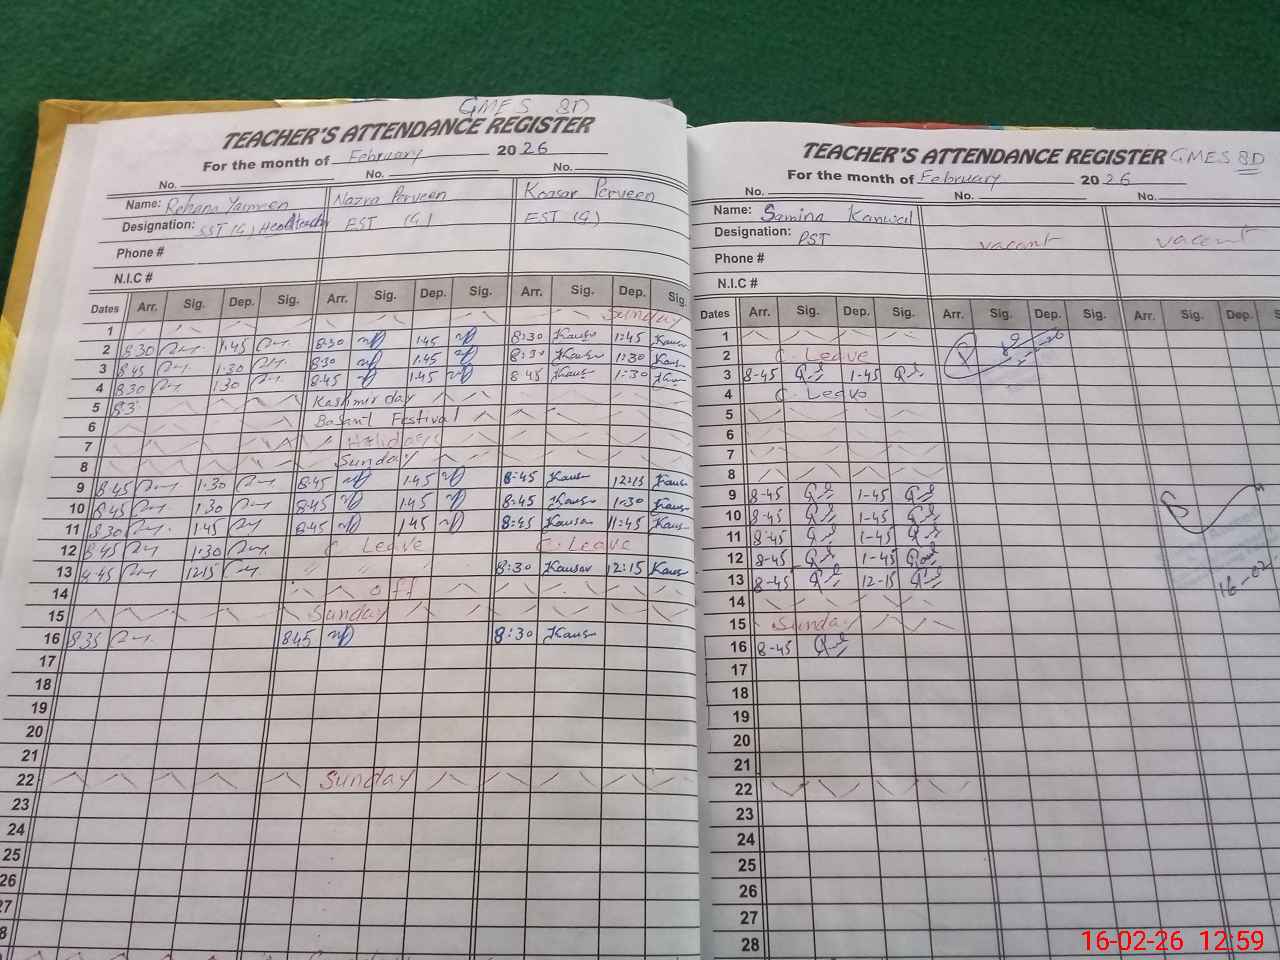 GMES BD
TEACHER'S ATTENDANCE REGISTER
For the month of February 2026
No. No. No.
Name: Rehana Yasmeen Nazra Perveen Kausar Perveen
Designation: SST (G) Headteacher EST (G) EST (G)
Phone #
N.I.C #
Dates Arr. Sig. Dep. Sig. Arr. Sig. Dep. Sig. Arr. Sig. Dep. Sig.
1 Sunday
2 8:30 1:45 8:30 1:45 8:30 Kausar 1:45 Kausar
3 8:45 1:30 8:30 1:45 8:30 Kausar 1:30 Kaus
4 8:30 1:30 8:45 1:45 8:45 Kaus 1:30 Kaus
5 83 Kashmir day
6 Basant Festival
7 Holidays
8 Sunday
9 8:45 1:30 8:45 1:45 8:45 Kausar 12:15 Kaus
10 8:45 1:30 8:45 1:45 8:45 Kausar 1:30 Kaus
11 8:30 1:45 8:45 1:45 8:45 Kausar 11:45 Kaus
12 8:45 1:30 C. Leave C. Leave
13 8:45 12:15 " " 8:30 Kausar 12:15 Kaus
14 off
15 Sunday
16 8:35 8:45 8:30 Kaus
17
18
19
20
21
22 Sunday
23
24
25
26
27
8
TEACHER'S ATTENDANCE REGISTER GMES BD
For the month of February 2026
No. No. No.
Name: Samina Kanwal
Designation: PST vacant vacant
Phone #
N.I.C #
Dates Arr. Sig. Dep. Sig. Arr. Sig. Dep. Sig. Arr. Sig. Dep. S
1
2 C. Leave
3 8-45 1-45
4 C. Leave
5
6
7
8
9 8-45 1-45
10 8-45 1-45
11 8-45 1-45
12 8-45 1-45
13 8-45 12-15
14 16-02
15 Sunday
16 8-45
17
18
19
20
21
22
23
24
25
26
27
28
16-02-26 12:59